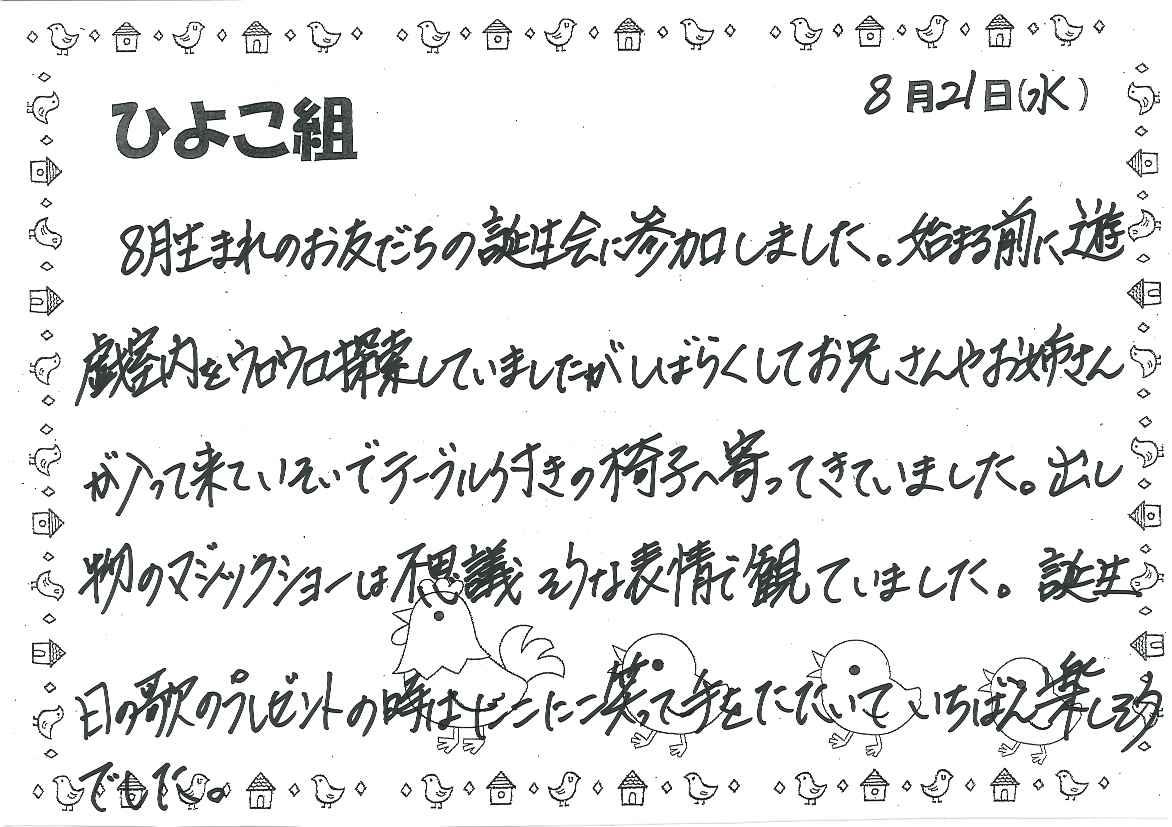 ひよこ組
8月21日(水)
8月生まれのお友だちの誕生会に参加しました。始まる前に、遊
戯室内をウロウロ探索していましたがしばらくしてお兄さんやお姉さん
が入って来ていそいでテーブル付きの椅子へ寄ってきていました。出し
物のマジックショーは不思議そうな表情で観ていました。誕生
日の歌のプレゼントの時はにこにこ笑って手をたたいていちばん楽しそう
でした。